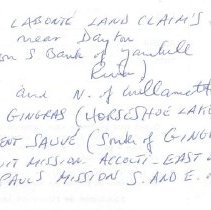 LABONTÉ LAND CLAIM'S
near Dayton
on S Bank of Yamhill
River)
and N. of Willamette
GINGRAS (HORSESHOE LAKE
ENT SAUVÉ (South of GING
UIT MISSION - ACCOLTI - EAST
PAUL'S MISSION S. AND E.